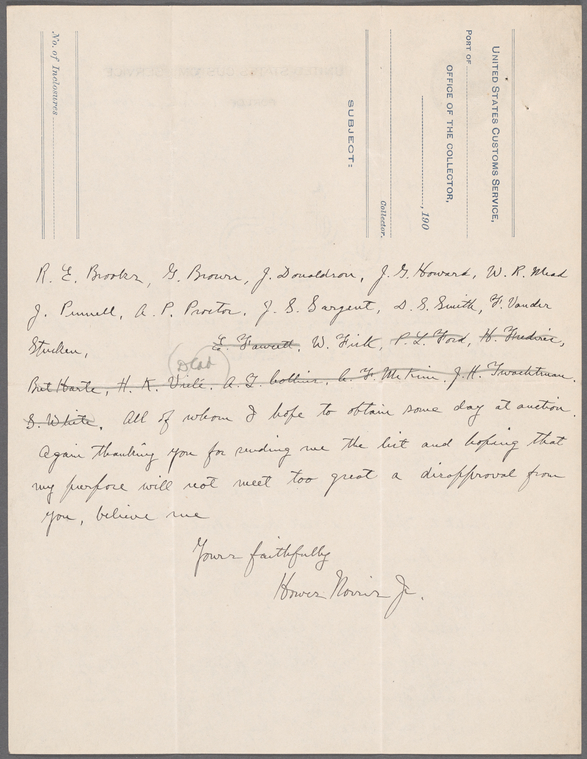 UNITED STATES CUSTOMS SERVICE,
PORT OF
OFFICE OF THE COLLECTOR,
, 190
Collector.
SUBJECT:
No. of Inclosures
R. E. Brooks, G. Brown, J. Donaldson, J. G. Howard, W. R. Mead
J. Pennell, A. P. Proctor, J. S. Sargent, D. S. Smith, F. Vander
Stucken, E. Fawcett, W. Fisk, P. L. Ford, H. Frederic,
Dead
Bret Harte, H. K. Vielé, A. L. Collins, C. F. McKim, J. H. Twachtman,
S. White. All of whom I hope to obtain some day at auction.
Again thanking you for sending me the list and hoping that
my purpose will not meet too great a disapproval from
you, believe me
Yours faithfully
Norris Jr.